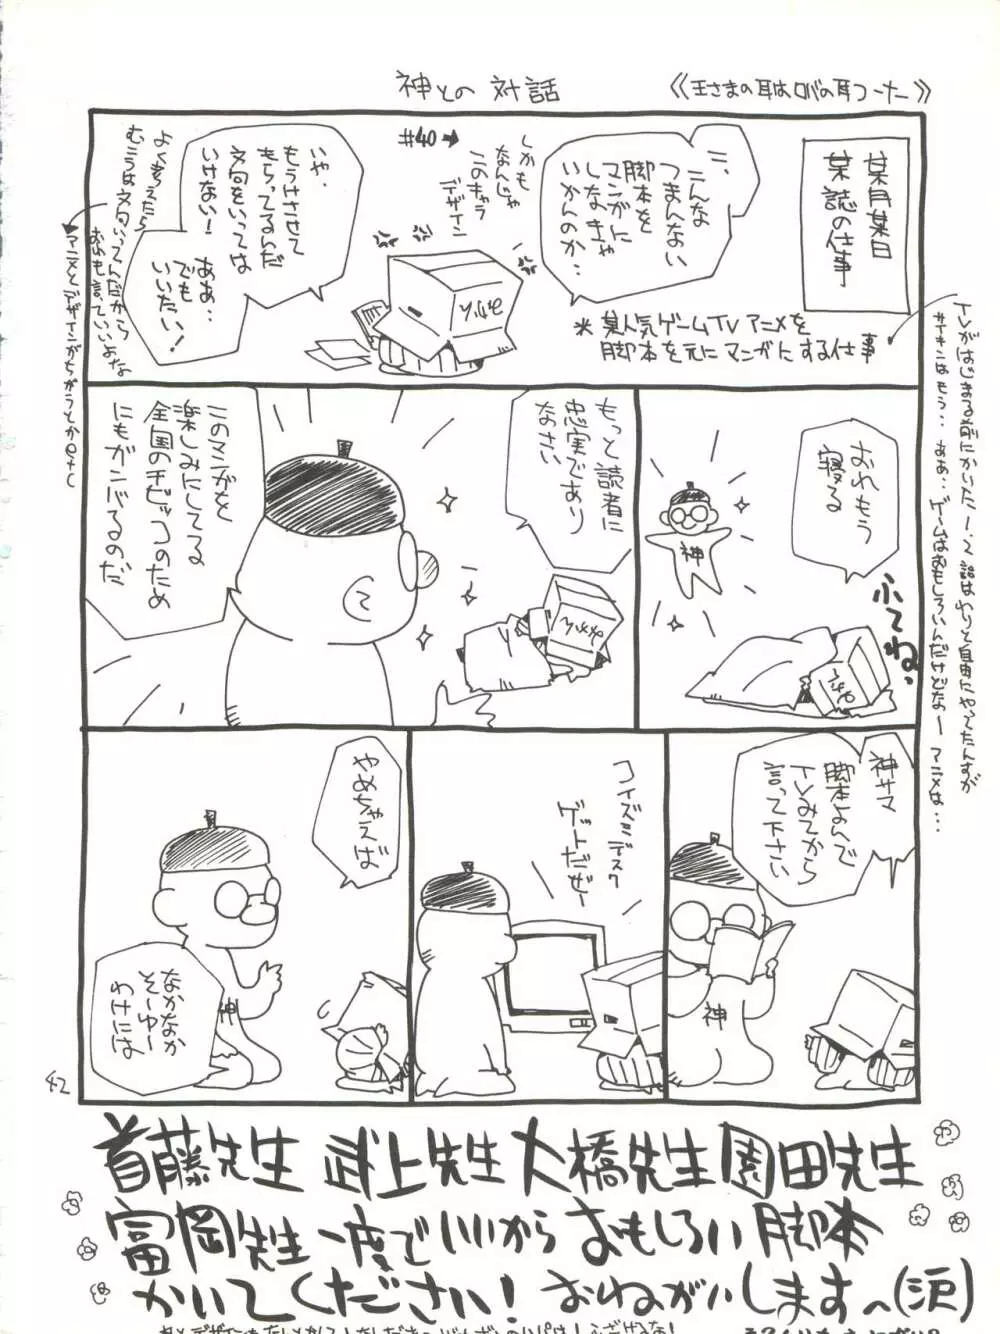 神との対話
《王さまの耳はロバの耳コーナー》
某月某日
某誌の仕事
こ、こんな
つまんない
脚本を
マンガに
しなきゃ
いかんのか…
しかも
なんじゃ
このキャラ
デザイン
#40→
いや、
もうけさせて
もらってるんだ
文句をいっては
いけない!
ああ…
でも
いいたい!
よく考えたら
むこうは文句いってんだから
おれも言っていいよな
アニメとデザインがちがうとかetc
*某人気ゲームTVアニメを
脚本を元にマンガにする仕事
TVがはじまる前にかいた1、2話はわりと自由にやってたんすが
サイキンはもう…ああ…ゲームはおもしろいんだけどなー アニメは…
おれもう
寝る
ふてね。
神
もっと読者に
忠実であり
なさい
このマンガを
楽しみにしてる
全国のチビッコのため
にもガンバるのだ
神サマ
脚本よんで
TVみてから
言って下さい
神
コイズミデスク
ゲットだぜー
やめちゃえば
なかなか
そーゆー
わけには
神
42
首藤先生 武上先生 大橋先生 園田先生
富岡先生 一度でいいから おもしろい脚本
かいてください! おねがいします〜(涙)